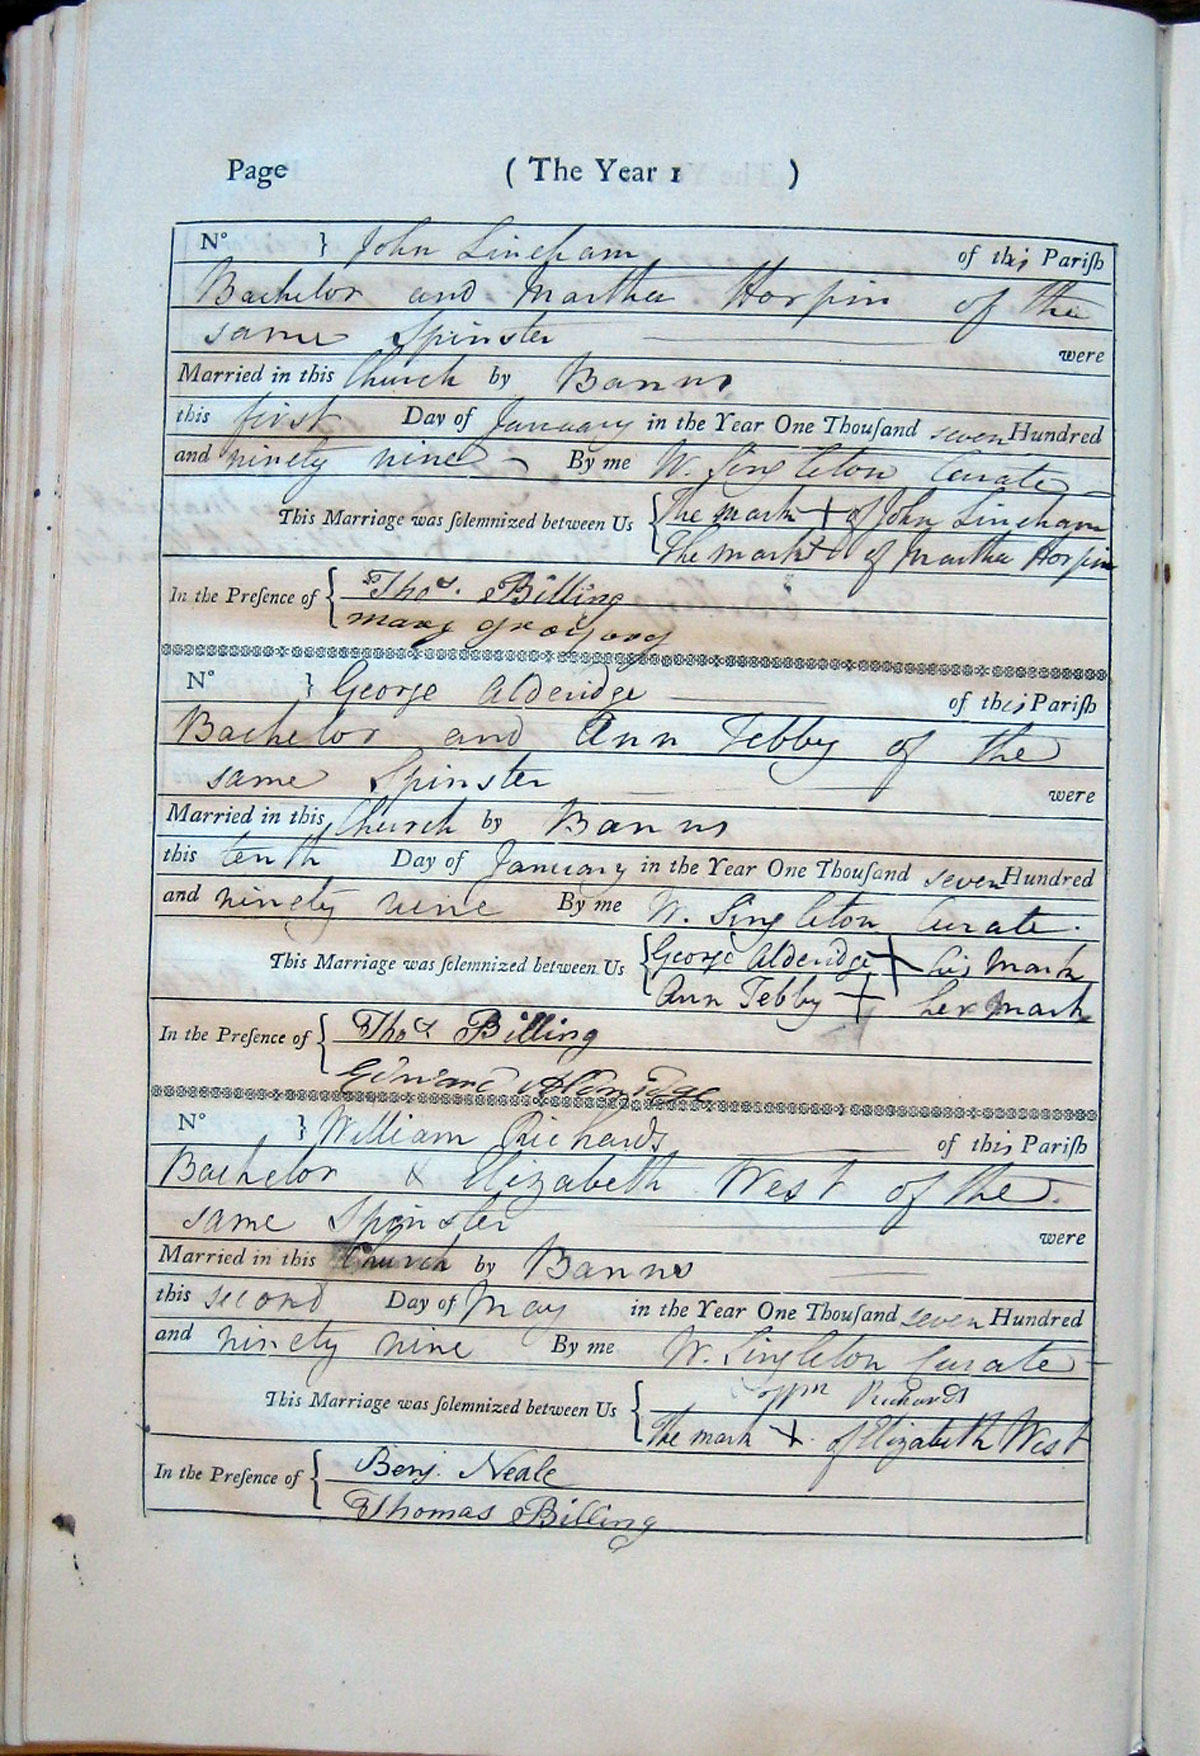 Page (The Year 1 )
No } John Lineham of this Pariſh
Bachelor and Martha Horpin of the
same Spinster were
Married in this Church by Banns
this first Day of January in the Year One Thouſand seven Hundred
and ninety nine By me W. Singleton Curate
This Marriage was ſolemnized between Us { The mark + of John Lineham
The mark + of Martha Horpin
In the Preſence of { Thos. Billing
mary
No } George Alderidge of this Pariſh
Bachelor and Ann Tebby of the
same Spinster were
Married in this Church by Banns
this tenth Day of January in the Year One Thouſand seven Hundred
and ninety nine By me W. Singleton Curate.
This Marriage was ſolemnized between Us { George Alderidge + his Mark
Ann Tebby + her Mark
In the Preſence of { Thos Billing
Edward
No } William Richards of this Pariſh
Bachelor & Elizabeth West of the
same Spinster were
Married in this Church by Banns
this second Day of May in the Year One Thouſand seven Hundred
and ninety nine By me W. Singleton Curate
This Marriage was ſolemnized between Us { Wm Richards
The mark + of Elizabeth West
In the Preſence of { Benj. Neale
Thomas Billing